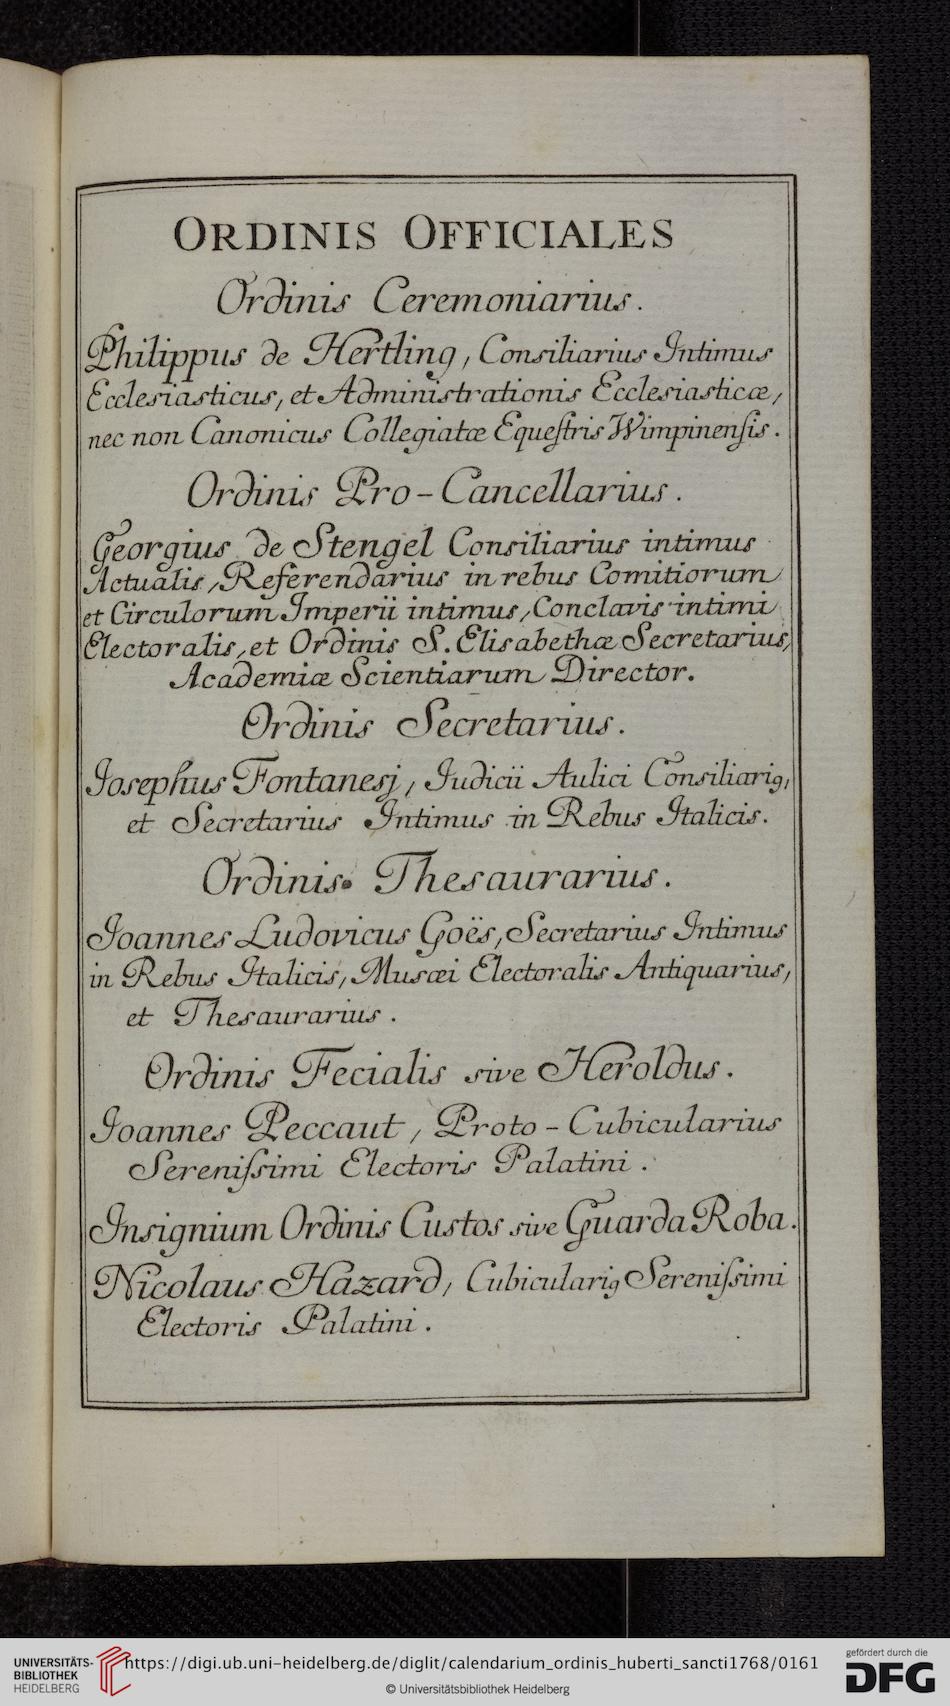 ORDINIS OFFICIALES
Ordinis Ceremoniarius.
Philippus de Hertling, Consiliarius Intimus
Ecclesiasticus, et Administrationis Ecclesiasticæ,
nec non Canonicus Collegiatæ Equeſtris Wimpinenſis.
Ordinis Pro-Cancellarius.
Georgius de Stengel Consiliarius intimus
Actualis, Referendarius in rebus Comitiorum
et Circulorum Imperii intimus, Conclavis intimi
Electoralis, et Ordinis S. Elisabethæ Secretarius,
Academiæ Scientiarum Director.
Ordinis Secretarius.
Josephus Fontanesj, Judicii Aulici Consiliariꝰ,
et Secretarius Intimus in Rebus Italicis.
Ordinis Thesaurarius.
Joannes Ludovicus Goës, Secretarius Intimus
in Rebus Italicis, Musæi Electoralis Antiquarius,
et Thesaurarius.
Ordinis Fecialis sive Heroldus.
Joannes Peccaut, Proto-Cubicularius
Sereniſsimi Electoris Palatini.
Insignium Ordinis Custos sive Guarda Roba.
Nicolaus Hazard, Cubiculariꝰ Sereniſsimi
Electoris Palatini.
UNIVERSITÄTS-
BIBLIOTHEK
HEIDELBERG
https://digi.ub.uni-heidelberg.de/diglit/calendarium_ordinis_huberti_sancti1768/0161
© Universitätsbibliothek Heidelberg
gefördert durch die
DFG